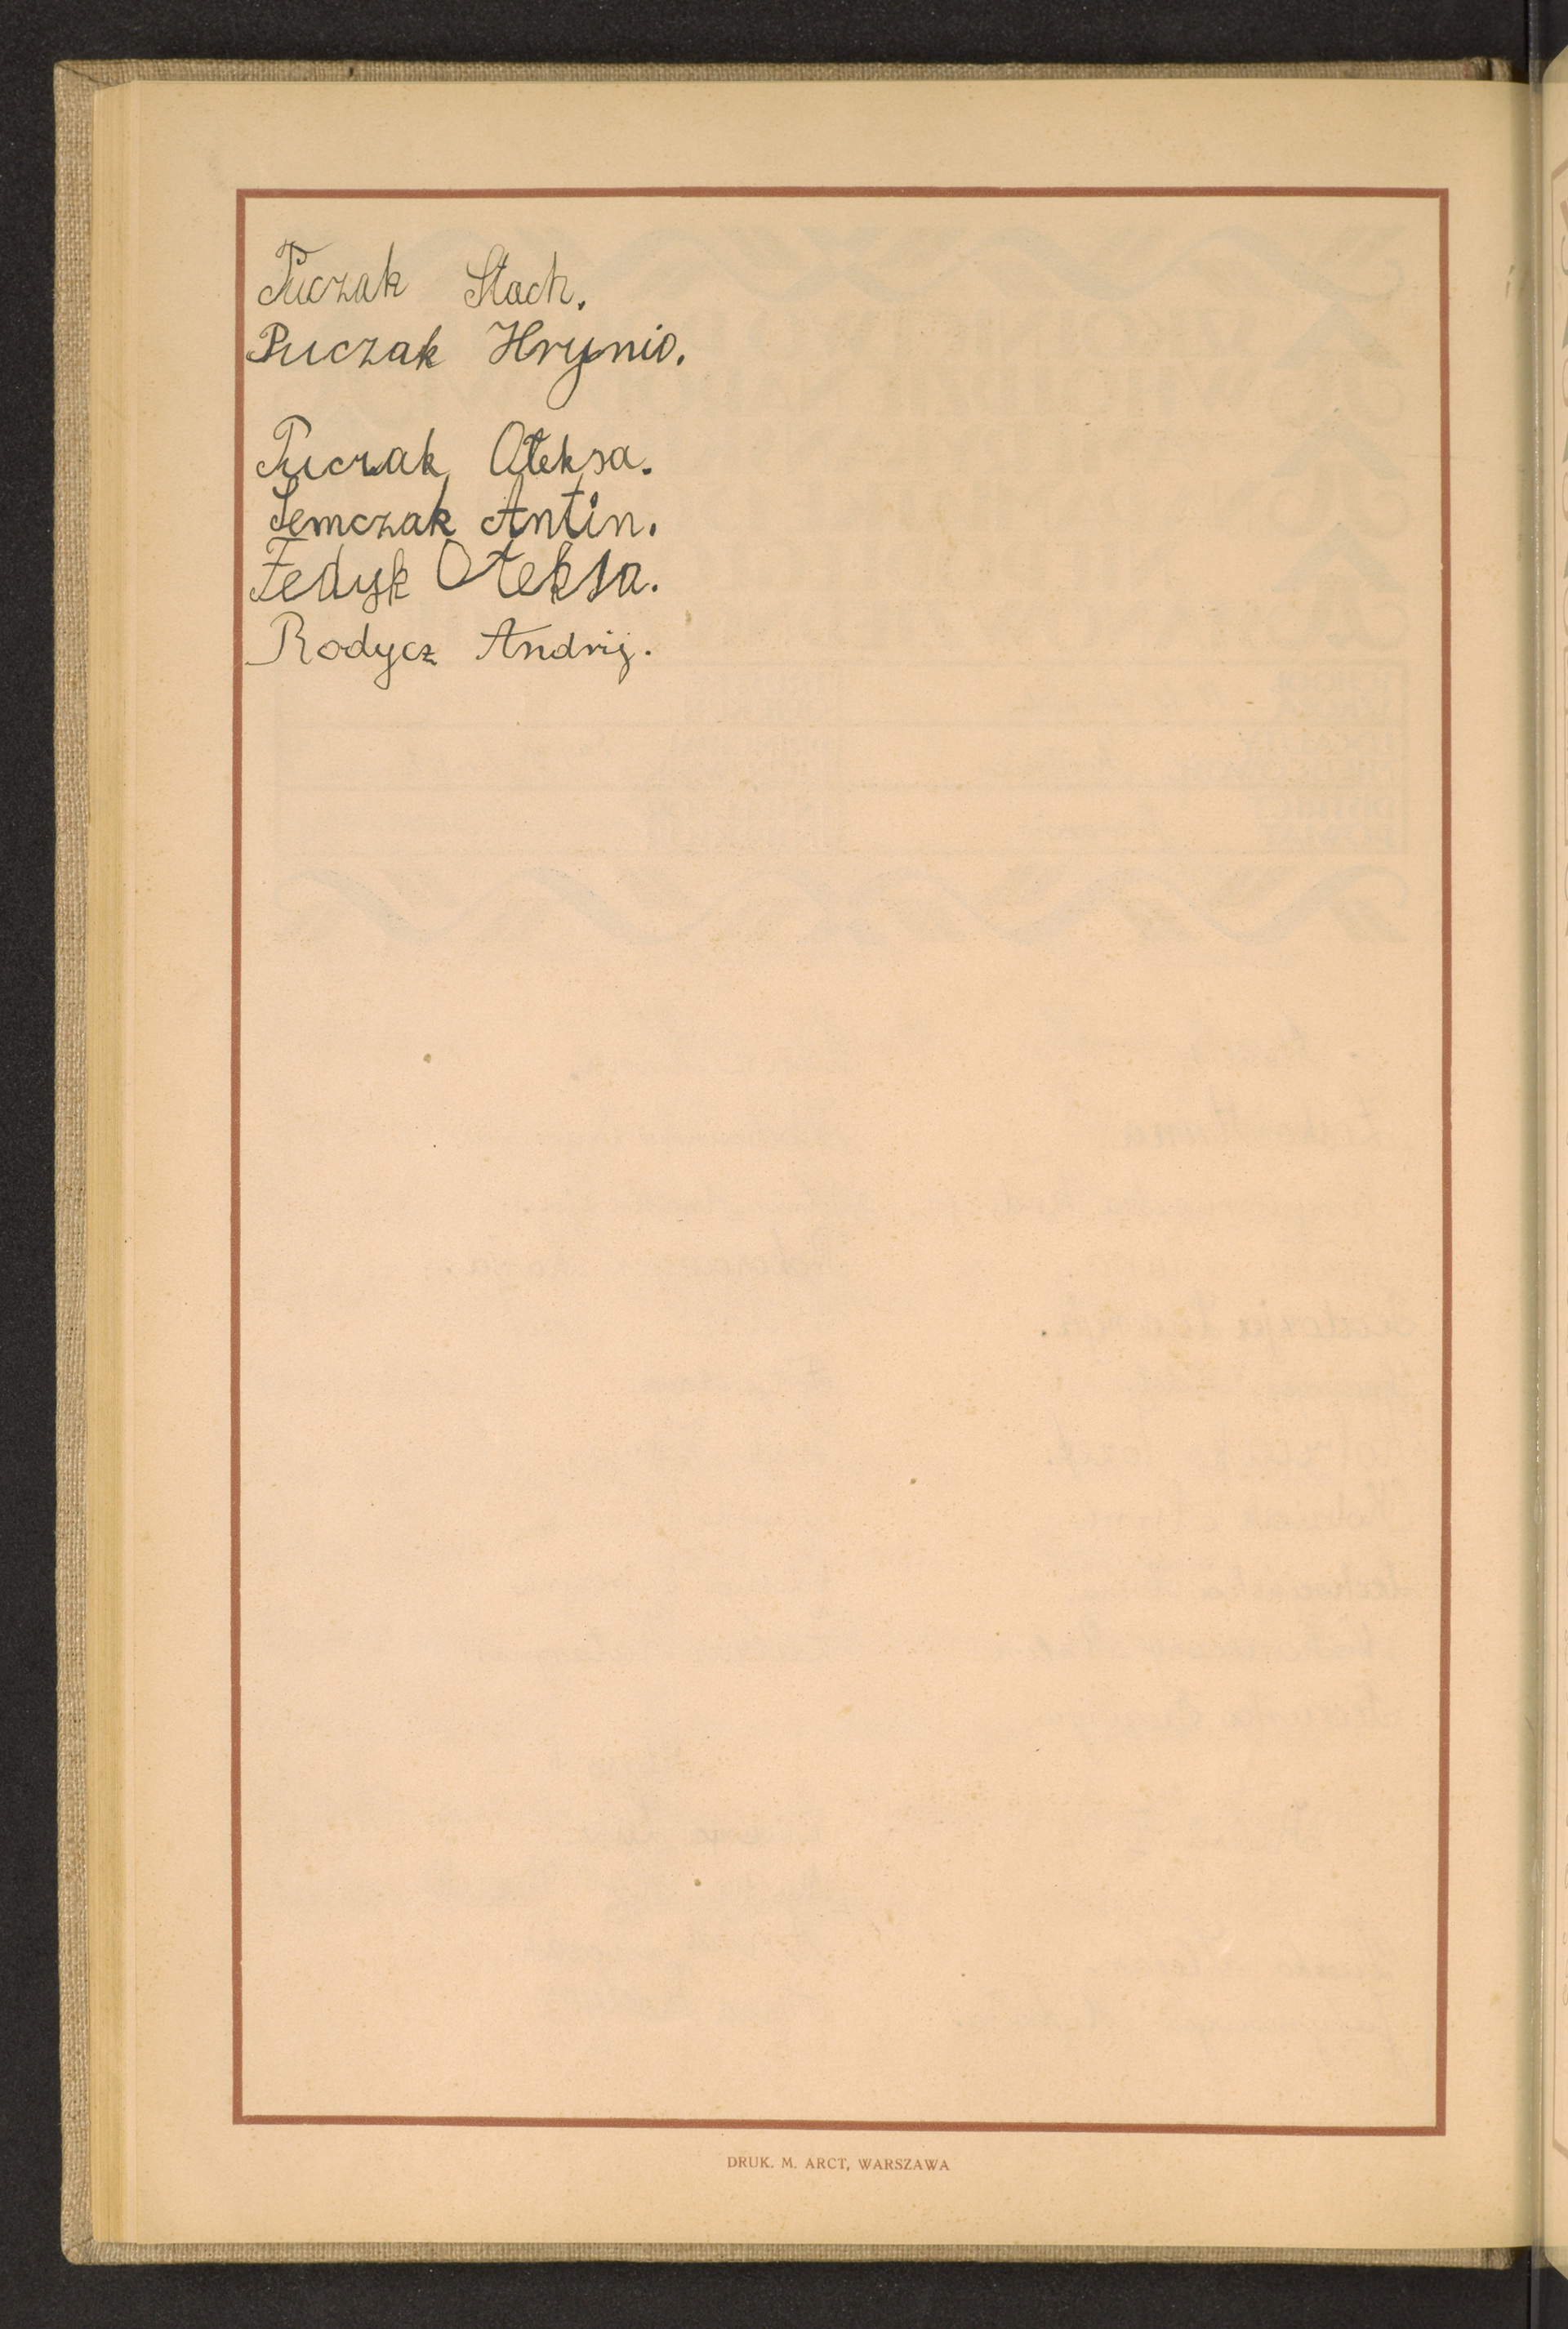 Puczak Stach.
Puczak Hrynio.
Puczak Ołeksa.
Semczak Antin.
Fedyk Ołeksa.
Rodycz Andrij.
DRUK. M. ARCT, WARSZAWA